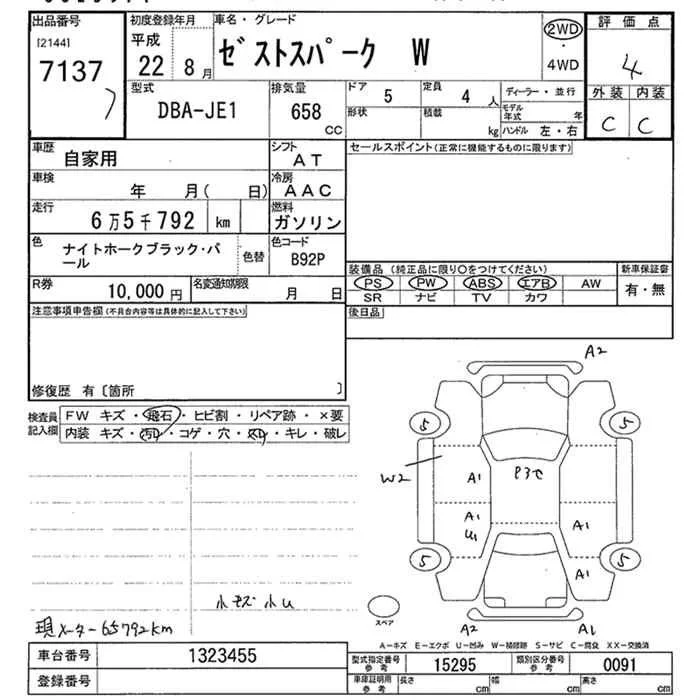 出品番号 初度登録年月 車名・グレード 評価点
[2144] 平成 ゼストスパーク W 2WD
7137 22 8月 ・ 4
4WD
型式 排気量 ドア 定員 ディーラー・並行 外装 内装
DBA-JE1 658 5 4人 モデル年式 年 C C
CC 形状 積載 kg ハンドル 左・右
車歴 自家用 シフト AT セールスポイント(正常に機能するものに限ります)
車検 年 月( 日) 冷房 AAC
走行 6万5千792 km 燃料 ガソリン
色 ナイトホークブラック・パール 色替 色コード B92P
装備品(純正品に限り○をつけてください) 新車保証書
R券 10,000円 名変通知期限 月 日 PS PW ABS エアB AW 有・無
SR ナビ TV カワ
注意事項申告欄(不具合内容等は具体的に記入して下さい) 後日品
修復歴 有〔箇所 〕
検査員記入欄 FW キズ・飛石・ヒビ割・リペア跡・×要
内装 キズ・汚レ・コゲ・穴・スレ・キレ・破レ
A2
5 5
W2 A1
A1 A1
U1
5 5
A1
A2 A1
小キズ 小U
スペア
現メーター65792km
A-キズ E-エクボ U-凹み W-補修跡 S-サビ C-腐食 XX-交換済
車台番号 1323455 型式指定番号 参考 15295 類別区分番号 参考 0091
登録番号 車庫証明用 参考 長さ cm 幅 cm 高さ cm